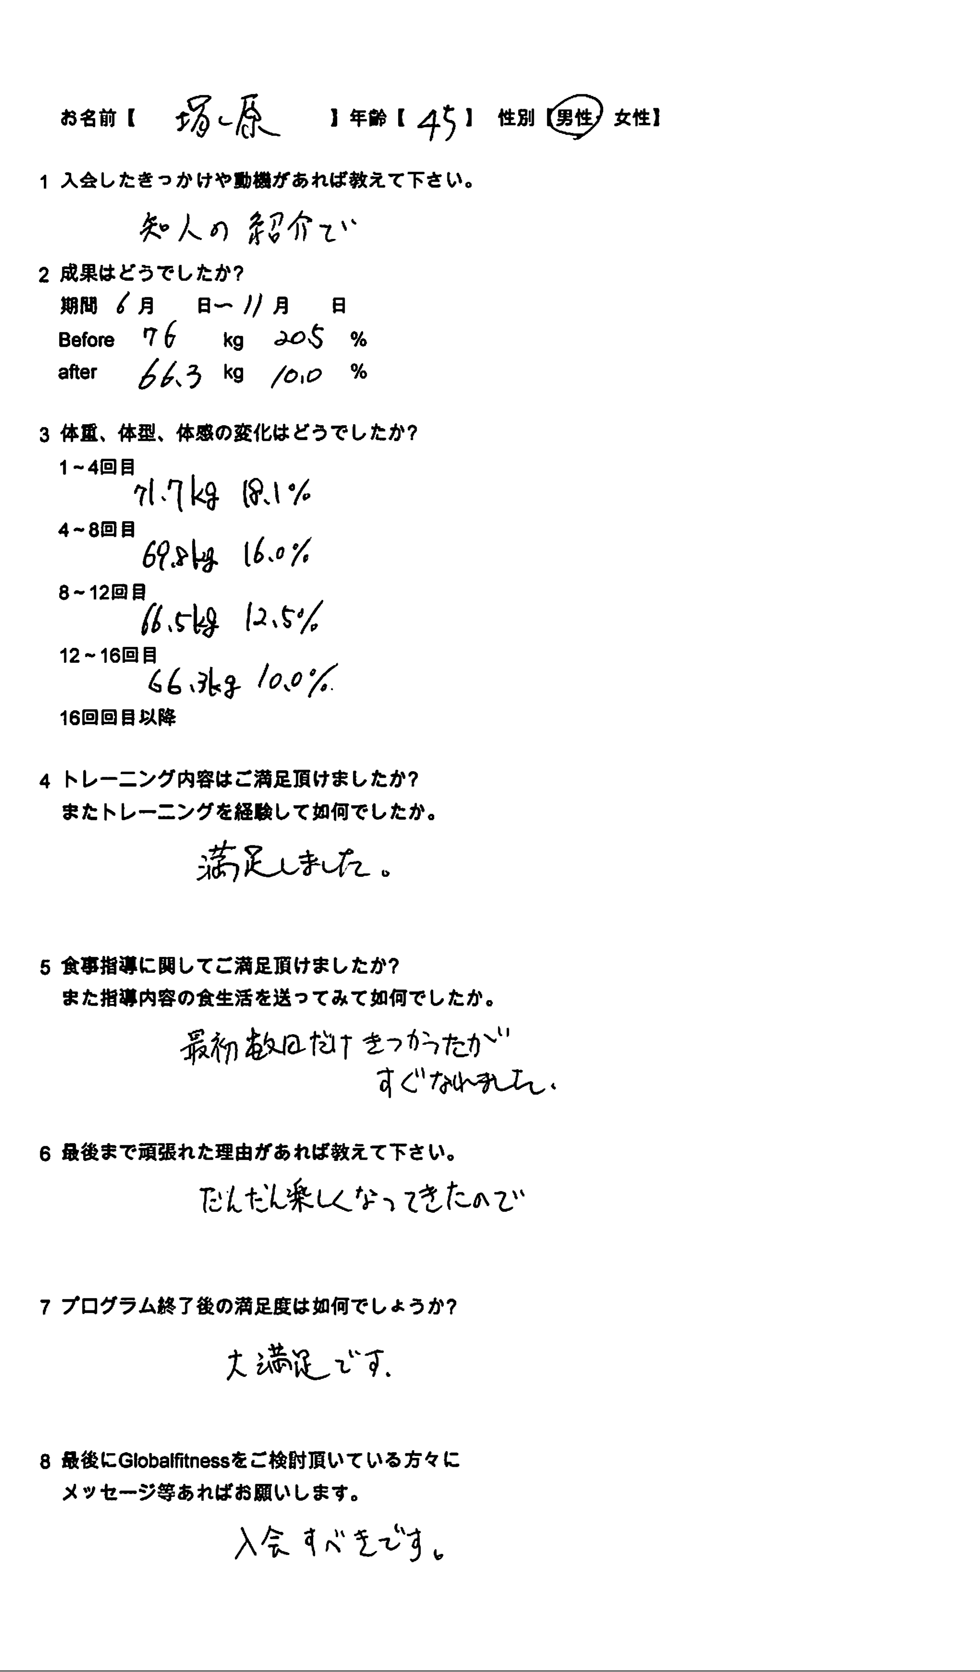 お名前【 塚原 】年齢【 45 】 性別【男性・女性】
1 入会したきっかけや動機があれば教えて下さい。
知人の紹介で
2 成果はどうでしたか?
期間 6月 日〜11月 日
Before 76 kg 20.5 %
after 66.3 kg 10.0 %
3 体重、体型、体感の変化はどうでしたか?
1~4回目
71.7kg 18.1%
4~8回目
69.8kg 16.0%
8~12回目
66.5kg 12.5%
12~16回目
66.3kg 10.0%
16回回目以降
4 トレーニング内容はご満足頂けましたか?
またトレーニングを経験して如何でしたか。
満足しました。
5 食事指導に関してご満足頂けましたか?
また指導内容の食生活を送ってみて如何でしたか。
最初数日だけきつかったが
すぐなれました、
6 最後まで頑張れた理由があれば教えて下さい。
だんだん楽しくなってきたので
7 プログラム終了後の満足度は如何でしょうか?
大満足です.
8 最後にGlobalfitnessをご検討頂いている方々に
メッセージ等あればお願いします。
入会すべきです。